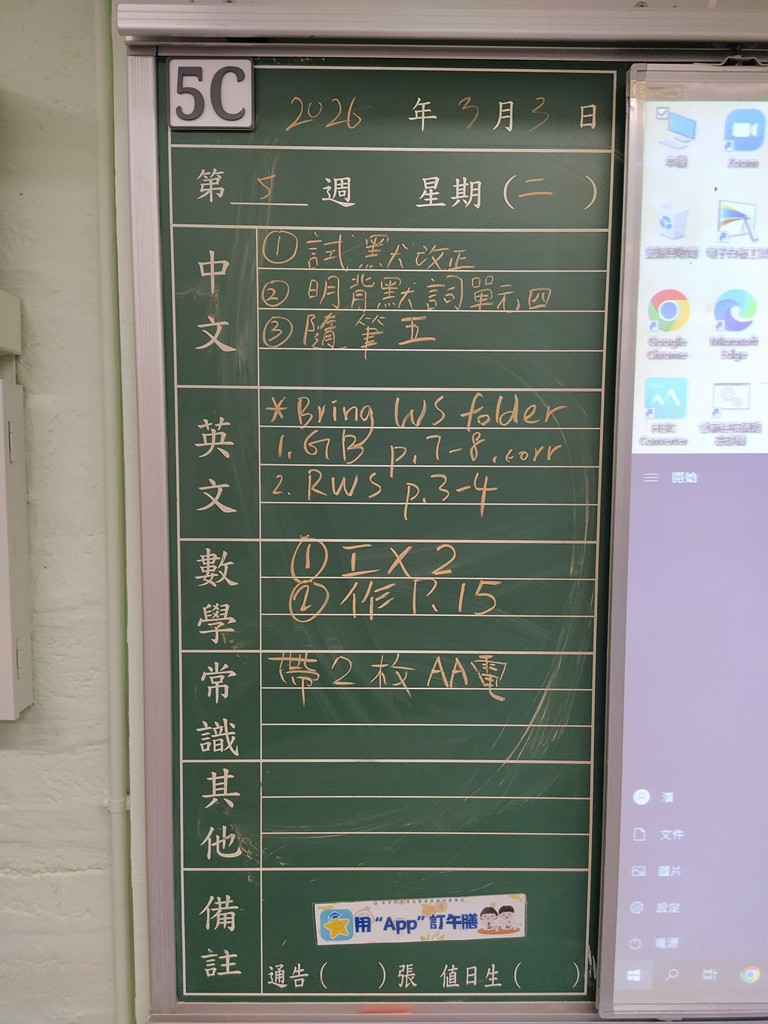 5C
2026 年 3 月 3 日
第 5 週 星期(二)
中文
① 試默改正
② 明背默詞單元四
③ 隨筆五
英文
*Bring WS folder
1. GB p.7-8, corr
2. RWS p.3-4
數學
① 工X2
② 作 P.15
常識
帶2枚AA電
其他
備註
用“App”訂午膳
通告( )張 值日生( )
Zoom
Google Chrome
Microsoft Edge
開始
文件
圖片
設定
電源